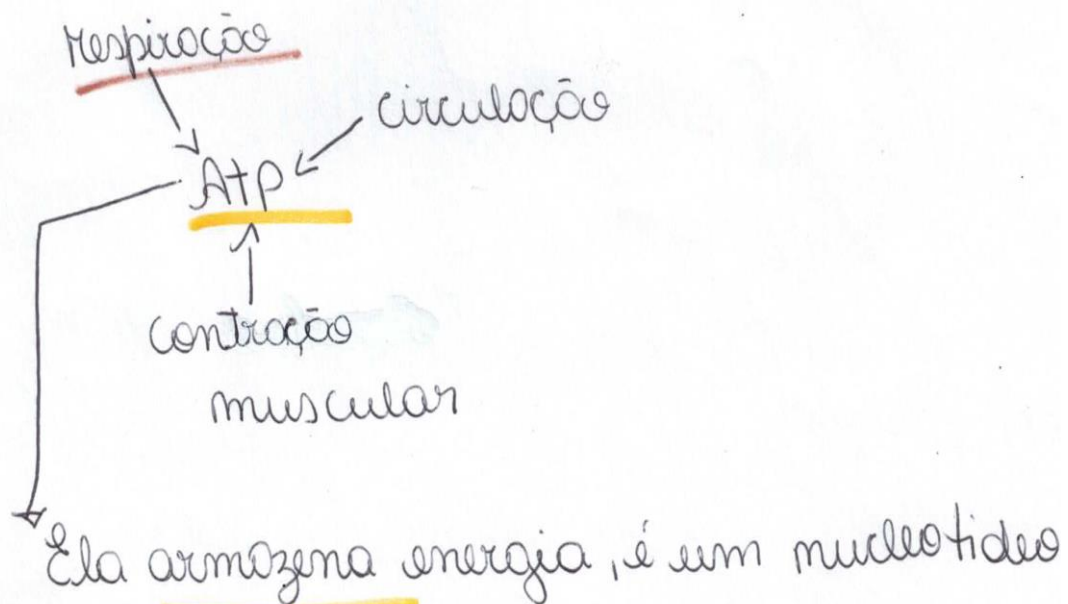 respiração
circulação
Atp
contração
muscular
Ela armazena energia, é um nucleotideo